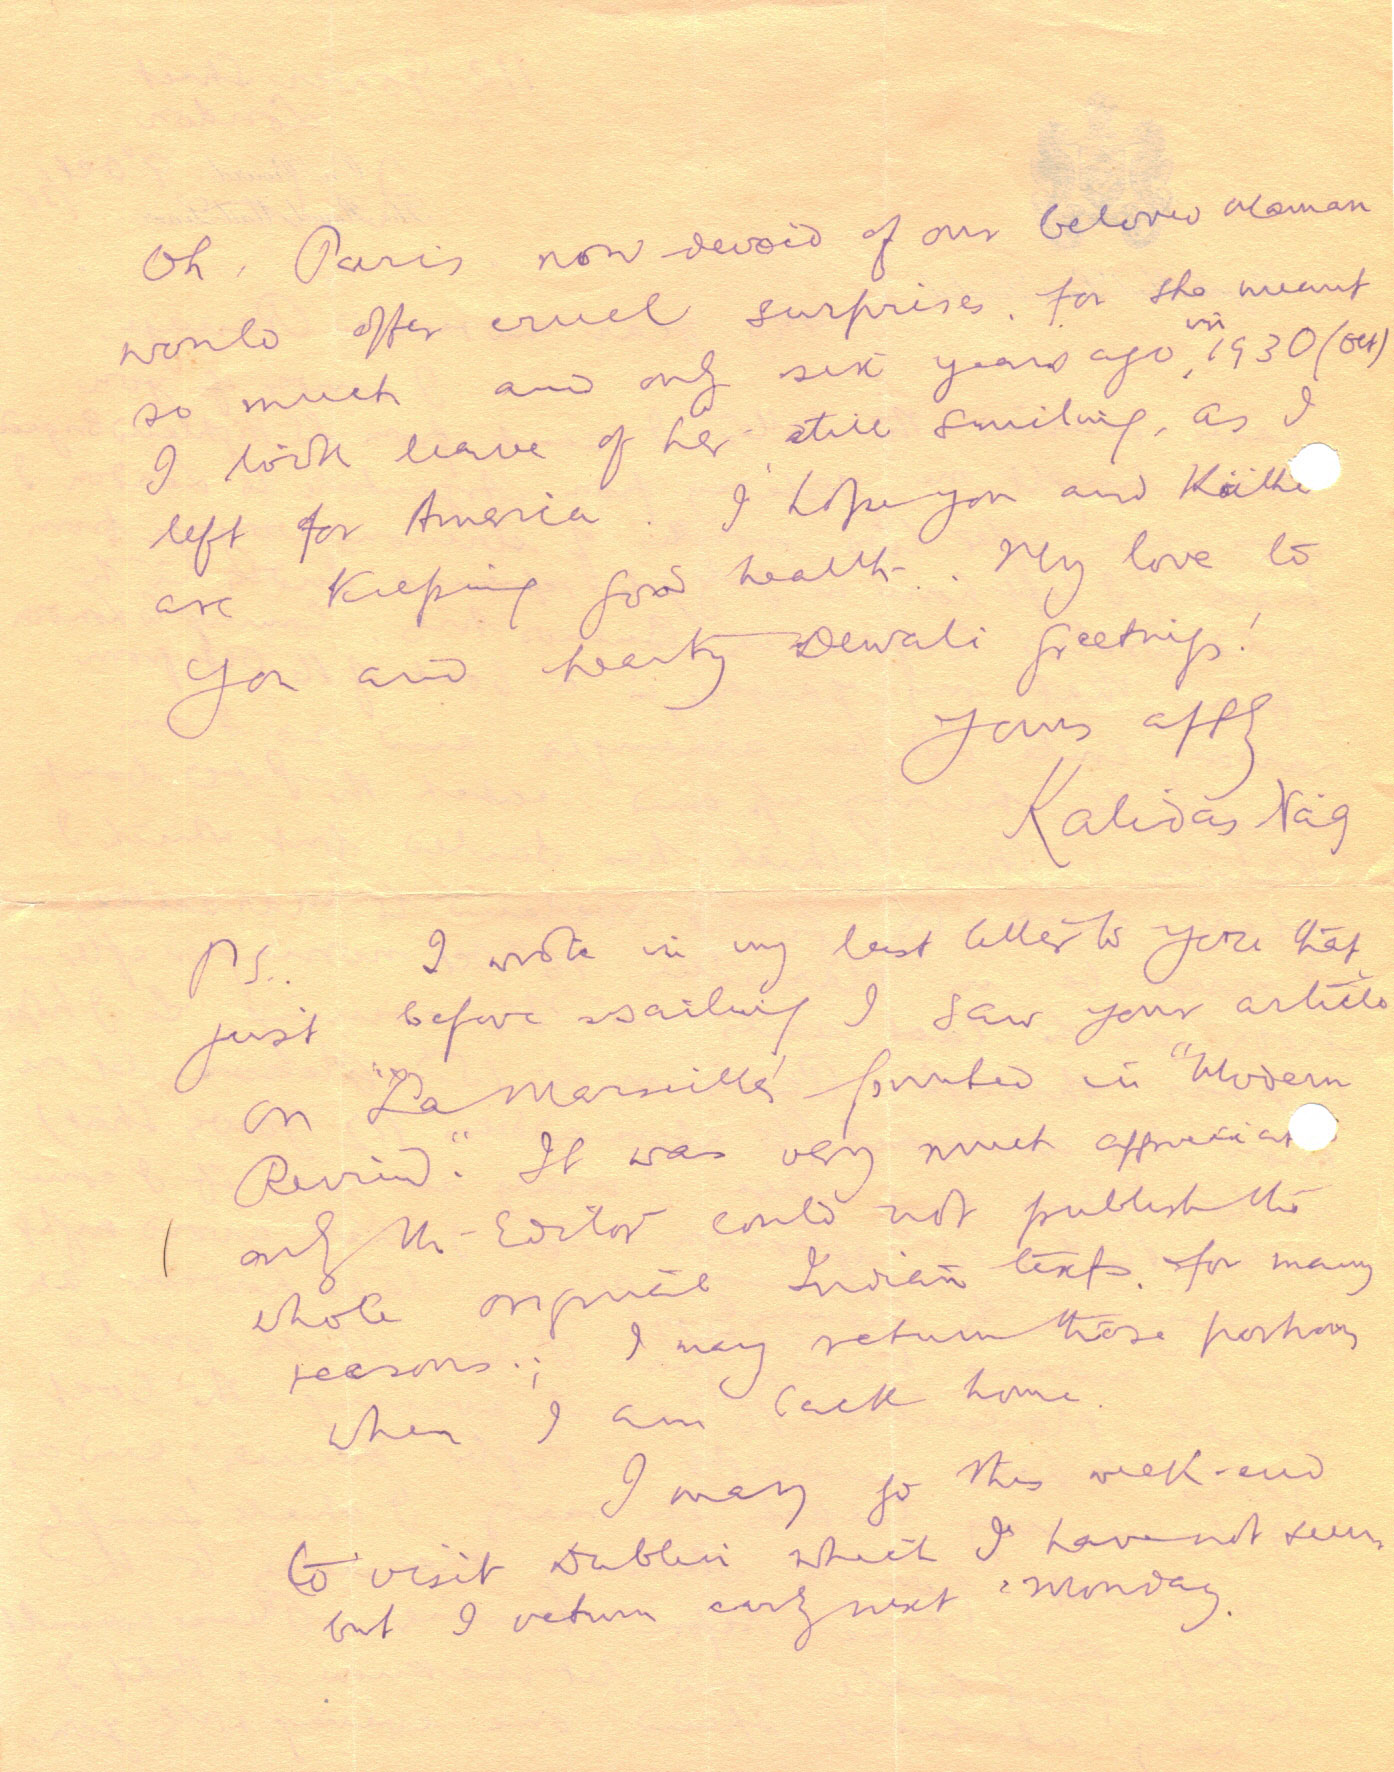 Oh, Paris now devoid of our beloved Maman
would offer cruel surprises, for she meant
so much and only six years ago, in 1930 (Oct)
I took leave of her still smiling, as I
left for America. I hope you and Käthe
are keeping good health. My love to
you and hearty Dewali greetings!
Yours affly
Kalidas Nag
PS. I wrote in my last letter to you that
just before sailing I saw your article
on "La Marseille" printed in "Modern
Review." It was very much appreciat
only the Editor could not publish the
whole original Indian texts for many
reasons; I may return those portions
when I am back home.
I may go this week-end
to visit Dublin which I have not seen
but I return early next Monday.